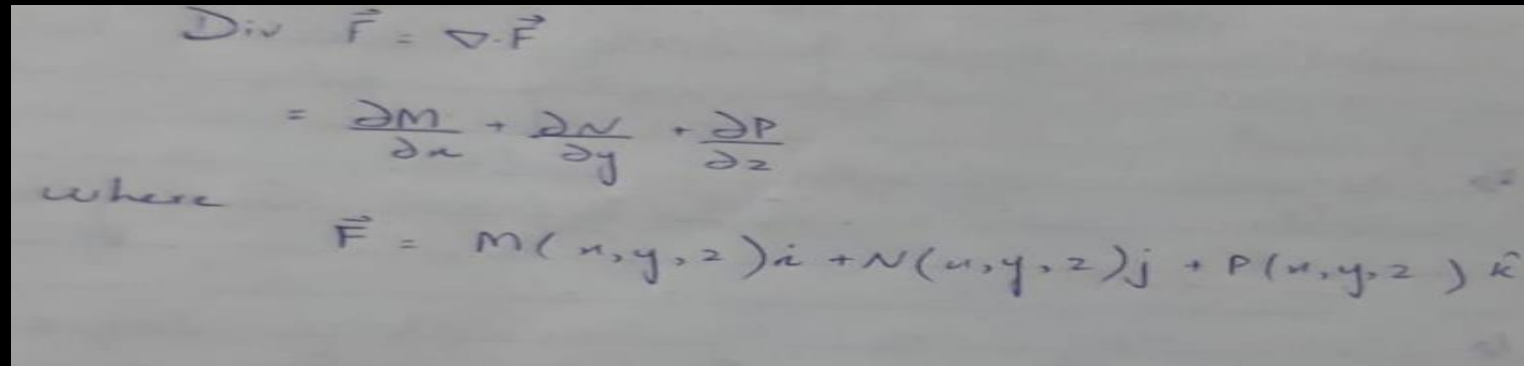 Div F⃗ = ∇.F⃗
= ∂M/∂x + ∂N/∂y + ∂P/∂z
where
F⃗ = M(x,y,z)i + N(x,y,z)j + P(x,y,z) k̂